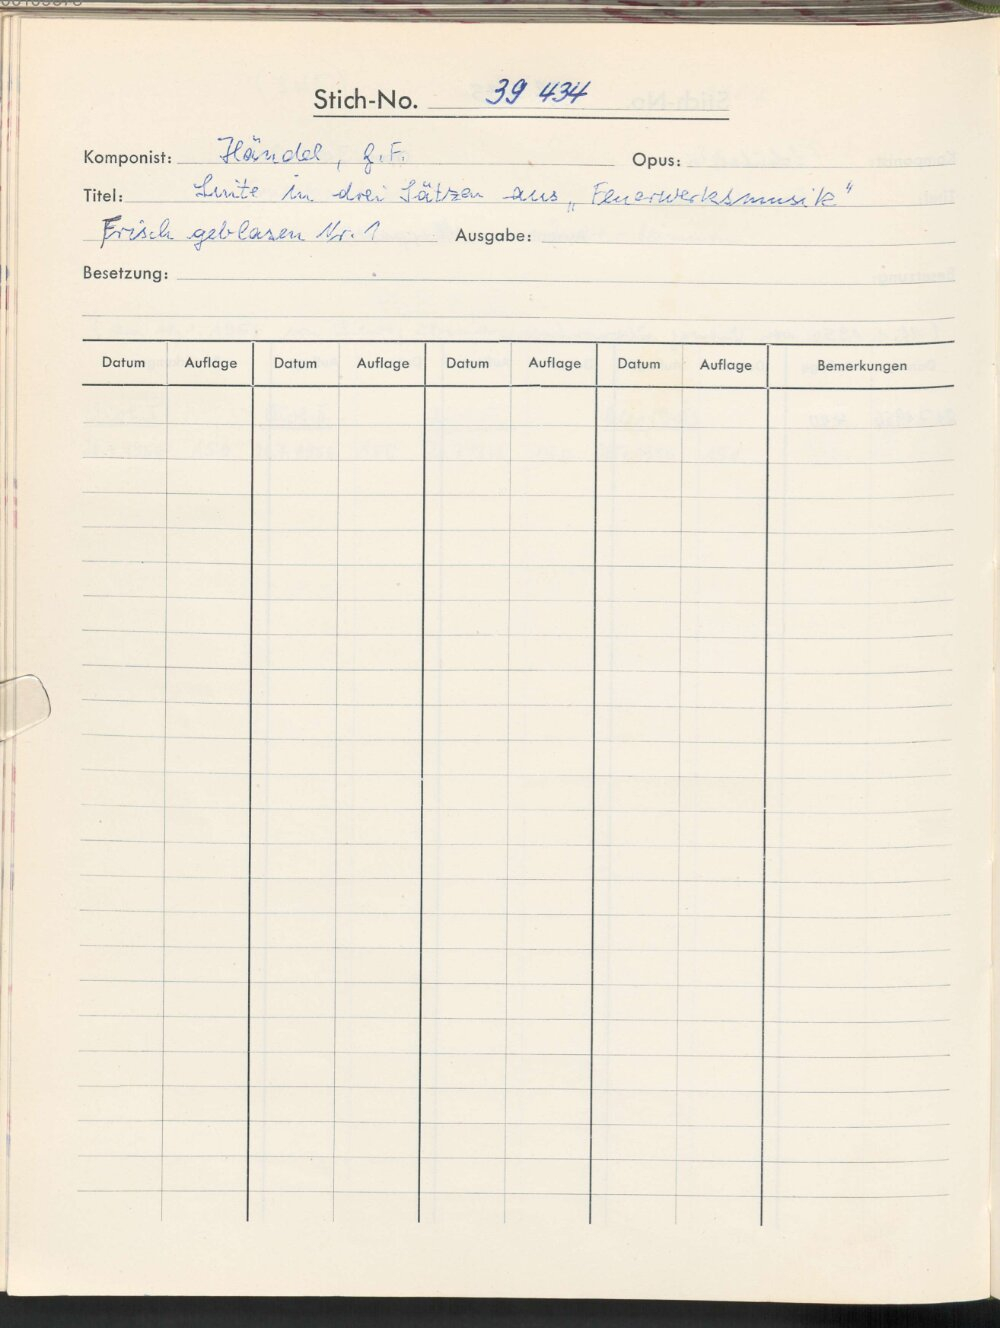 Stich-No. 39 434
Komponist: Händel, G.F. Opus:
Titel: Suite in drei Sätzen aus „Feuerwerksmusik"
Frisch geblasen Nr. 1 Ausgabe:
Besetzung:
Datum Auflage Datum Auflage Datum Auflage Datum Auflage Bemerkungen